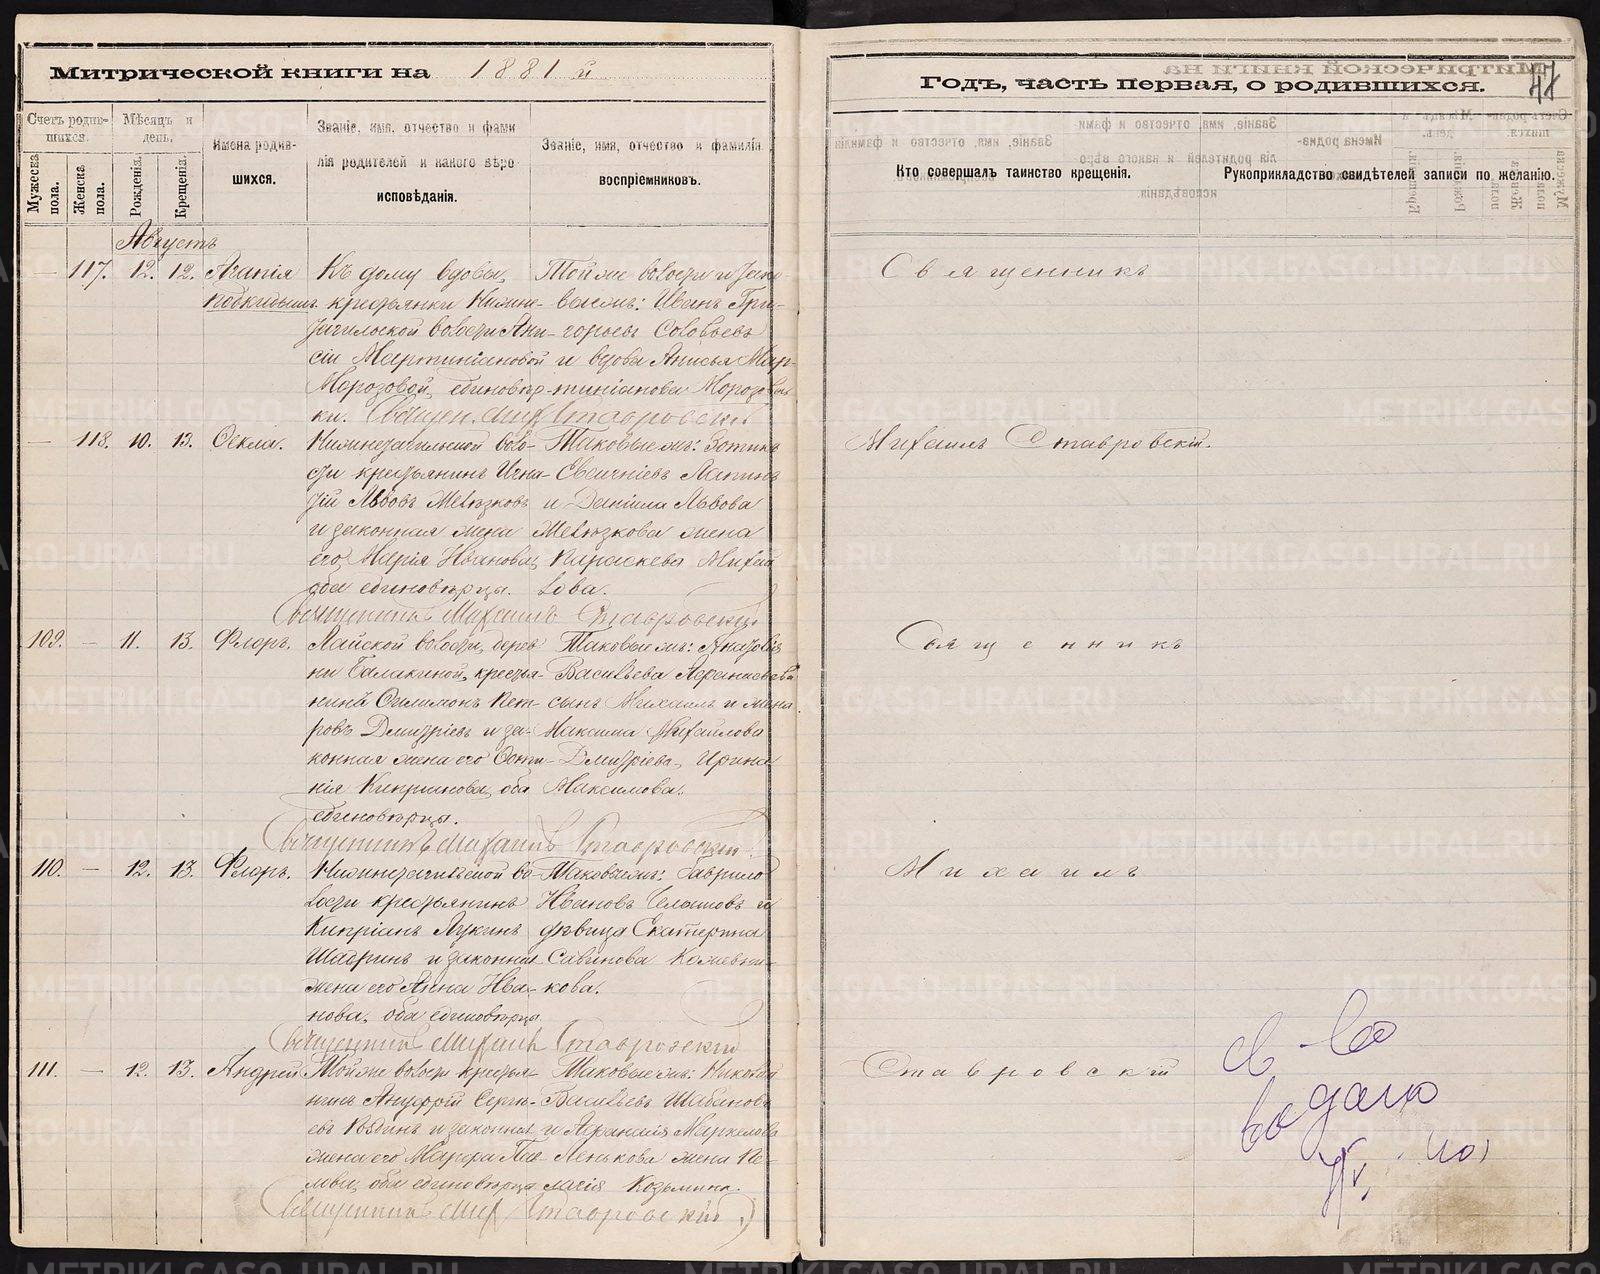 Митрической книги на 1881 й
Счетъ родив-
шихся.
Мѣсяцъ и
день.
Имена родив-
шихся.
Званіе, имя, отчество и фами
лія родителей и какого вѣро
исповѣданія.
Званіе, имя, отчество и фамилія
воспріемниковъ.
Мужеска
пола.
Женска
пола.
Рожденія.
Крещенія.
Августъ
— 117. 12. 12. Агапія
подкидышъ
Къ дому вдовы,
крестьянки Нижне-
тагильской волости Ани-
сіи Мартиніановой
Морозовой, единовѣр-
ки.
Той же волости и
вые жъ: Иванъ Гри-
горьевъ Соловьевъ
и вдова Анисья Мар-
тиніанова Морозова
Священ. Мих. Ставровскій
— 118. 10. 13. Ѳекла.
Нижнетагильской воло-
сти крестьянинъ Игна-
тій Львовъ
и законная жена
его Марія Иванова,
оба единовѣрцы.
Таковые жъ: Зотикъ
Лапинъ
и Даніила Львова
жена
Параскева Михай
лова.
Священникъ Михаилъ Ставровскій
109. — 11. 13. Флоръ.
Лайской волости, дерев
ни Балакиной, крестья-
нинъ Филимонъ Пет-
ровъ Дмитріевъ и за-
конная жена его Фоти-
нія Кипріанова, оба
единовѣрцы.
Таковые жъ: Анатолія
Васильева
сынъ Михаилъ и жена
Максима Михайлова
Дмитріева, Ирина
Максимова.
Священникъ Михаилъ Ставровскій
110. — 12. 13. Флоръ.
Нижнетагильской во-
лости крестьянинъ
Кипріанъ Лукинъ
Шадринъ и законная
жена его Анна Ива-
нова, оба единовѣрцы
Таковые жъ: Гаврило
Ивановъ и
дѣвица Екатерина
Савинова Кожевни-
кова.
Священникъ Михаилъ Ставровскій
111. — 12. 13. Андрей
Той же волости крестья-
нинъ Ануфрій Серги-
евъ и законная
жена его Марфа Пав-
лова, оба единовѣрца
Таковые жъ: Николай
Васильевъ Шабановъ
и Афанасія Маркелова
Пенькова жена Пе-
лагія Козьмина.
Священникъ Мих. Ставровскій
Годъ, часть первая, о родившихся.
47
Кто совершалъ таинство крещенія.
Рукоприкладство свидѣтелей записи по желанію.
Священникъ
Михаилъ Ставровскій.
Священникъ
Михаилъ
Ставровскій
св-во
выдано
METRIKI.GASO-URAL.RU